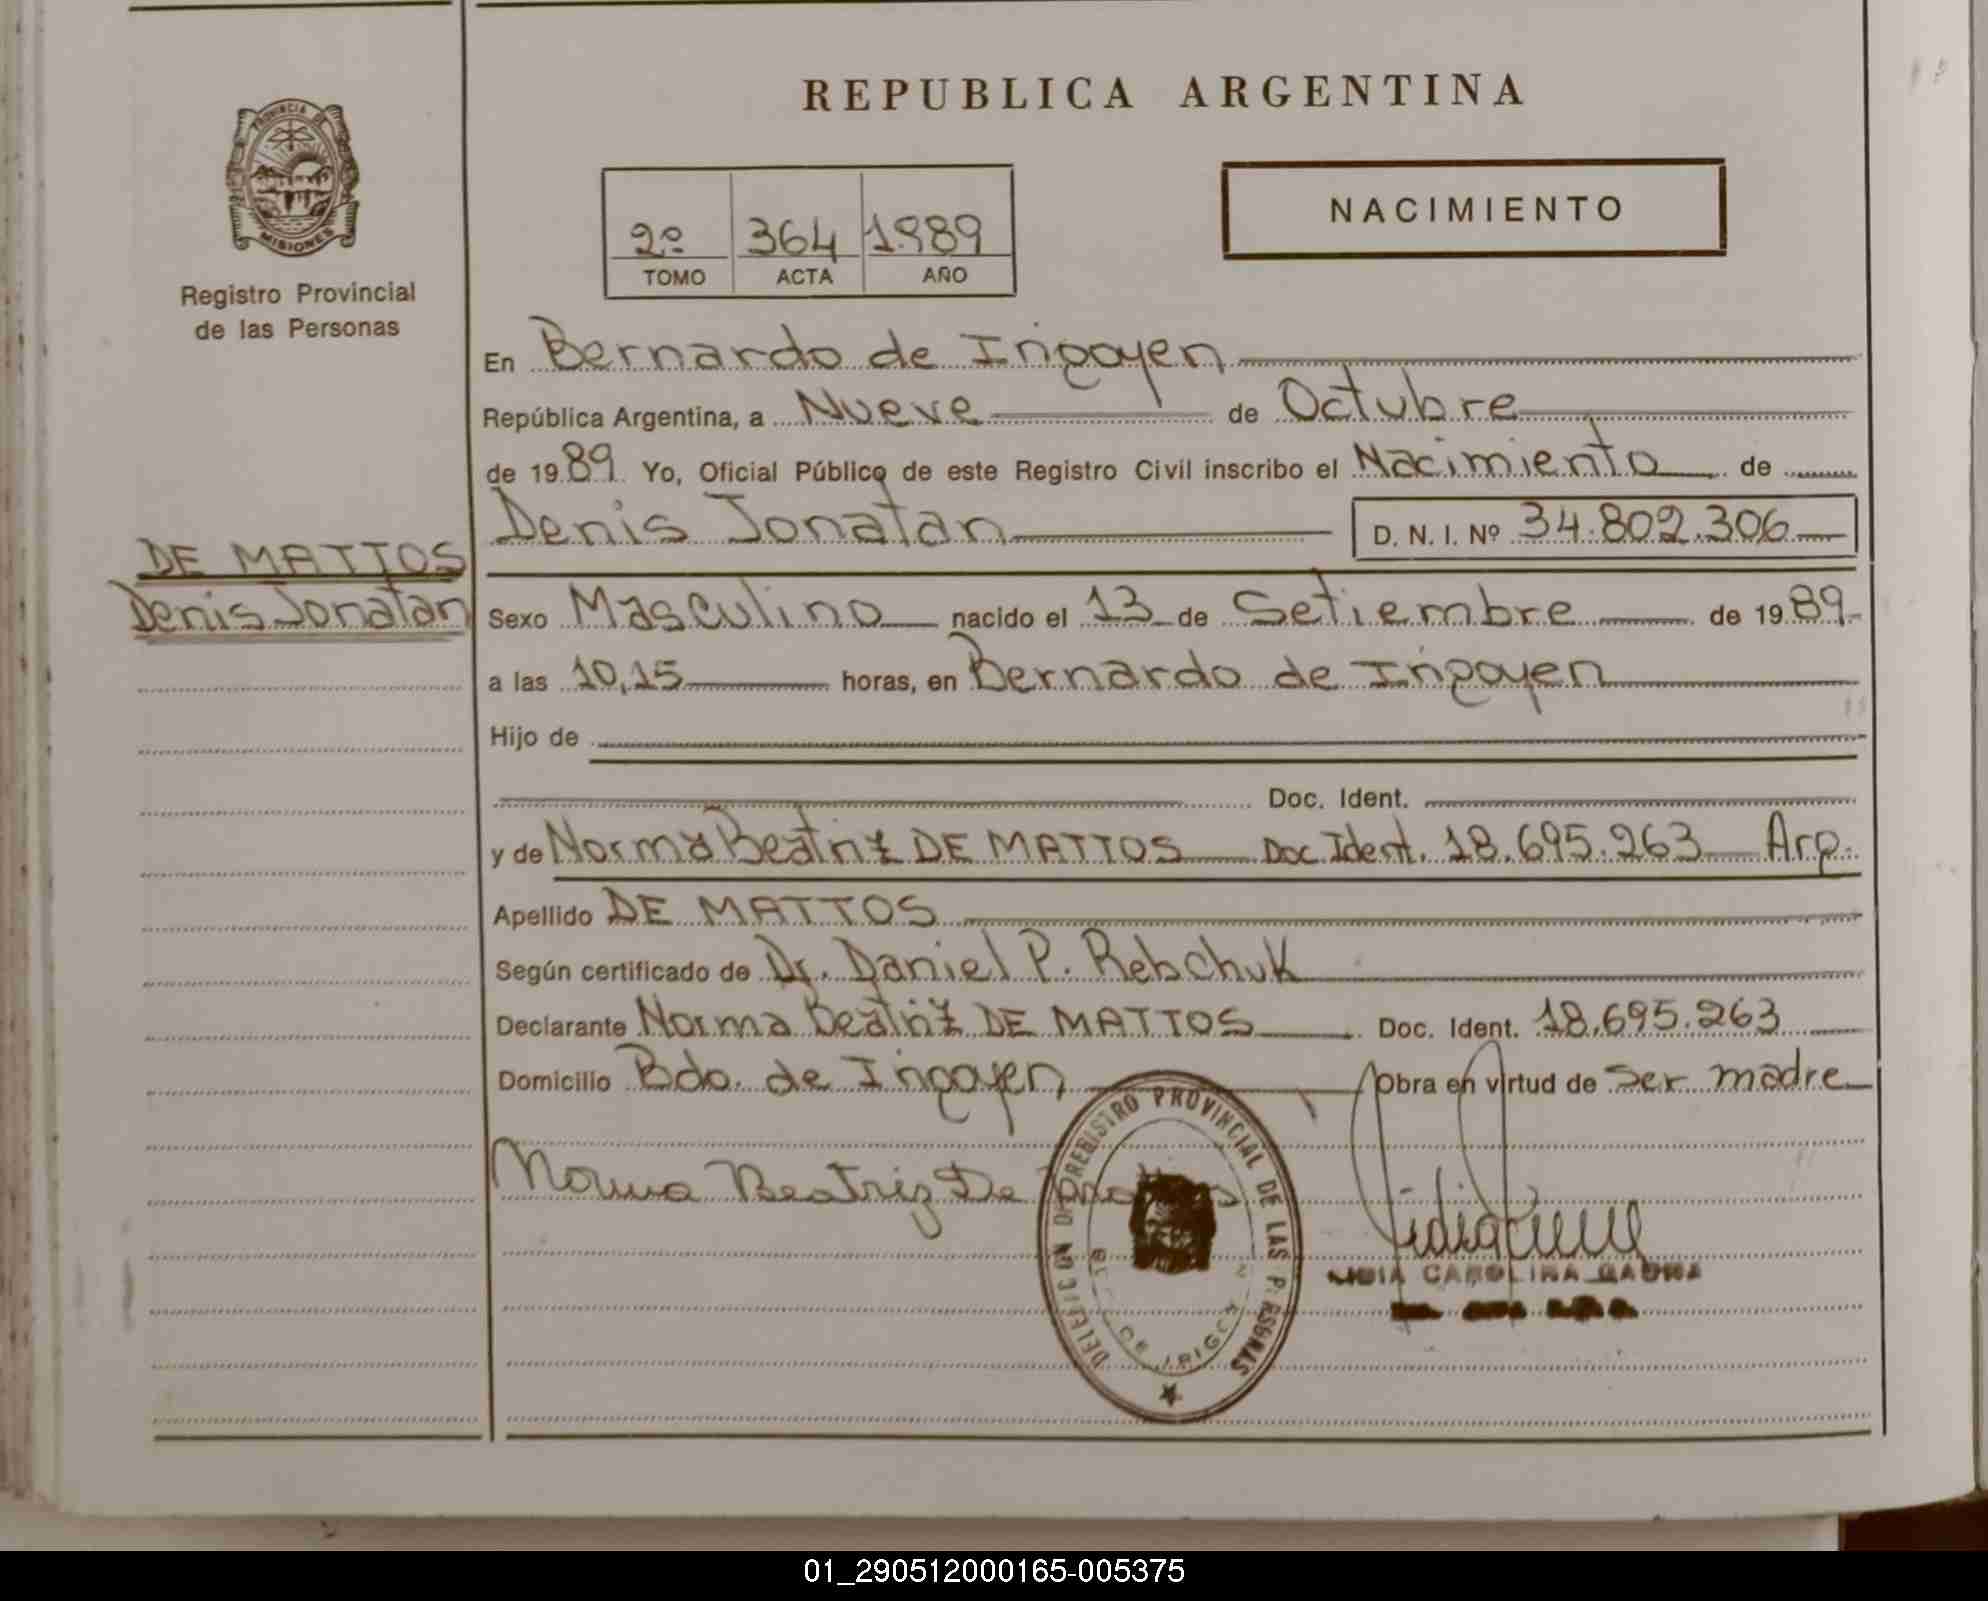 REPUBLICA ARGENTINA
PROVINCIA DE
MISIONES
Registro Provincial
de las Personas
2º 364 1989
TOMO ACTA AÑO
NACIMIENTO
En Bernardo de Irigoyen
República Argentina, a Nueve de Octubre
de 1989 Yo, Oficial Público de este Registro Civil inscribo el Nacimiento de
Denis Jonatan D. N. I. Nº 34.802.306
DE MATTOS
Denis Jonatan
Sexo Masculino nacido el 13 de Setiembre de 1989
a las 10,15 horas, en Bernardo de Irigoyen
Hijo de
Doc. Ident.
y de Norma Beatriz DE MATTOS Doc Ident. 18.695.263 Arg.
Apellido DE MATTOS
Según certificado de Dr. Daniel P. Rebchuk
Declarante Norma Beatriz DE MATTOS Doc. Ident. 18.695.263
Domicilio Bdo. de Irigoyen Obra en virtud de ser madre
Norma Beatriz De
REGISTRO PROVINCIAL DE LAS PERSONAS
DE IRIGOYEN
CAROLINA
01_290512000165-005375